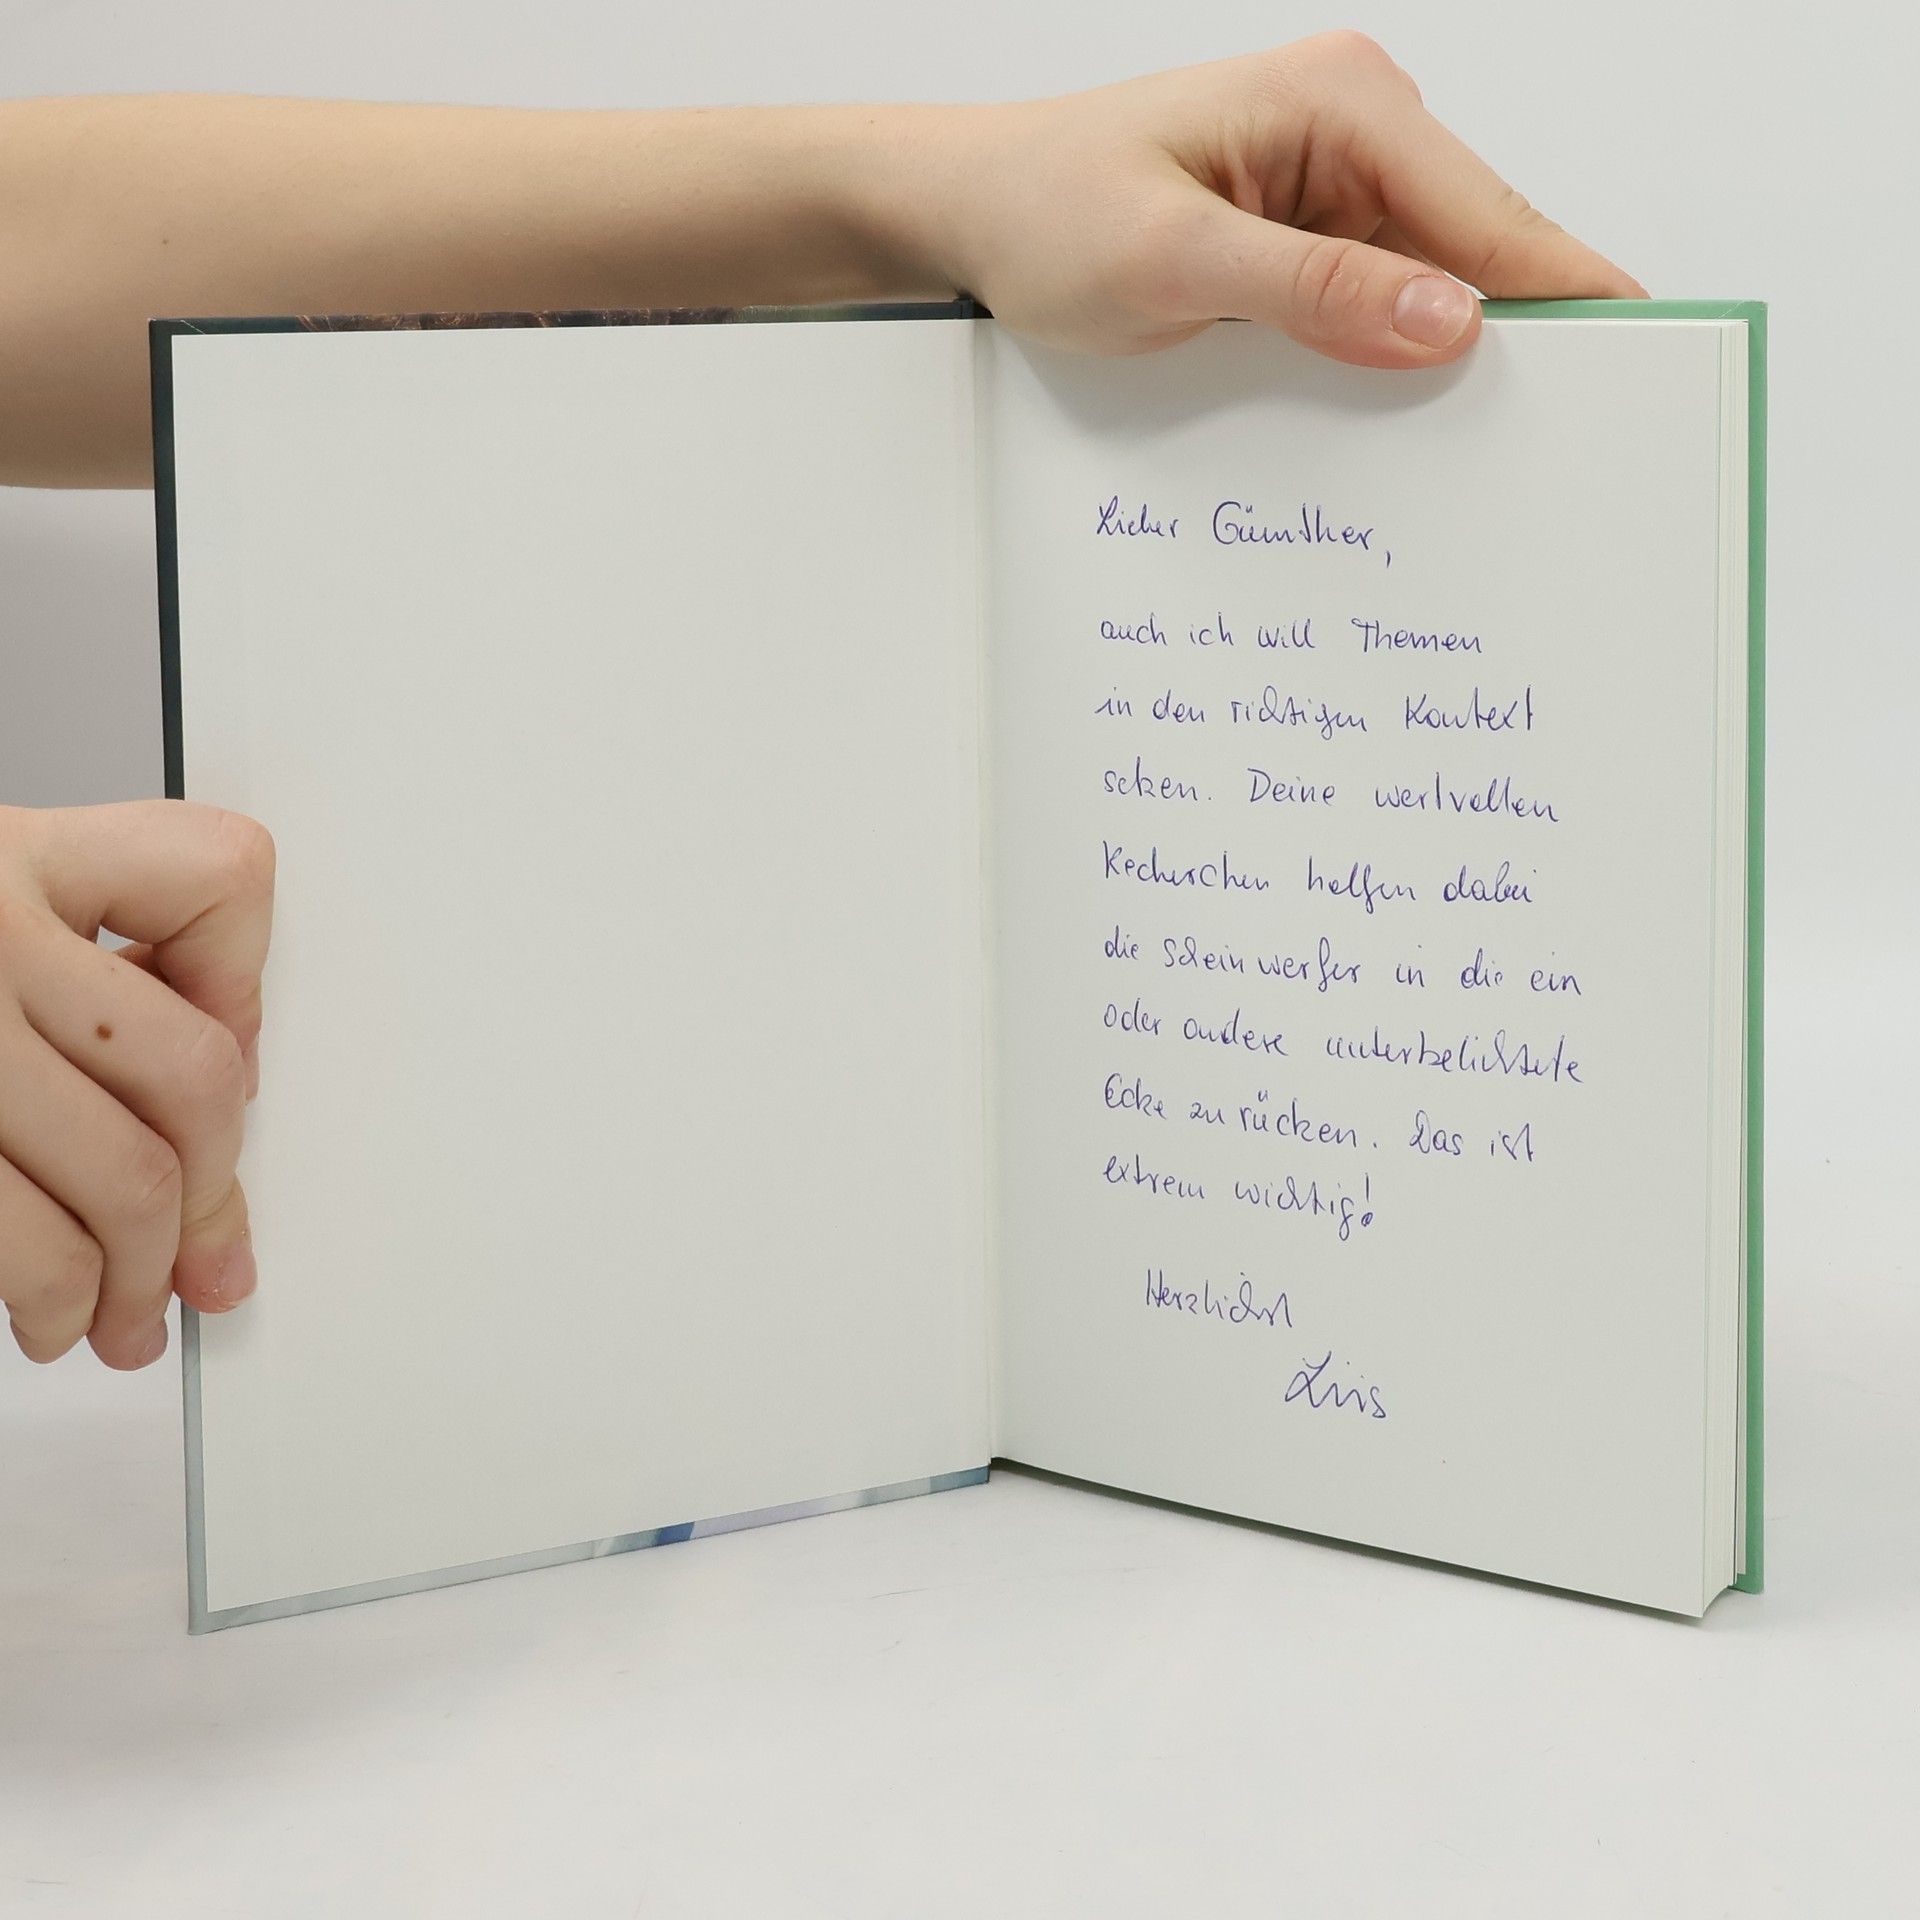 Lieber Günther,
auch ich will Themen
in den richtigen Kontext
setzen. Deine wertvollen
Recherchen helfen dabei
die Scheinwerfer in die ein
oder andere unterbelichtete
Ecke zu rücken. Das ist
extrem wichtig!
Herzlichst